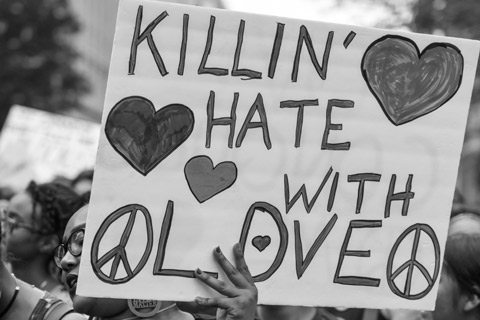 KILLIN'
HATE
WITH
LOVE